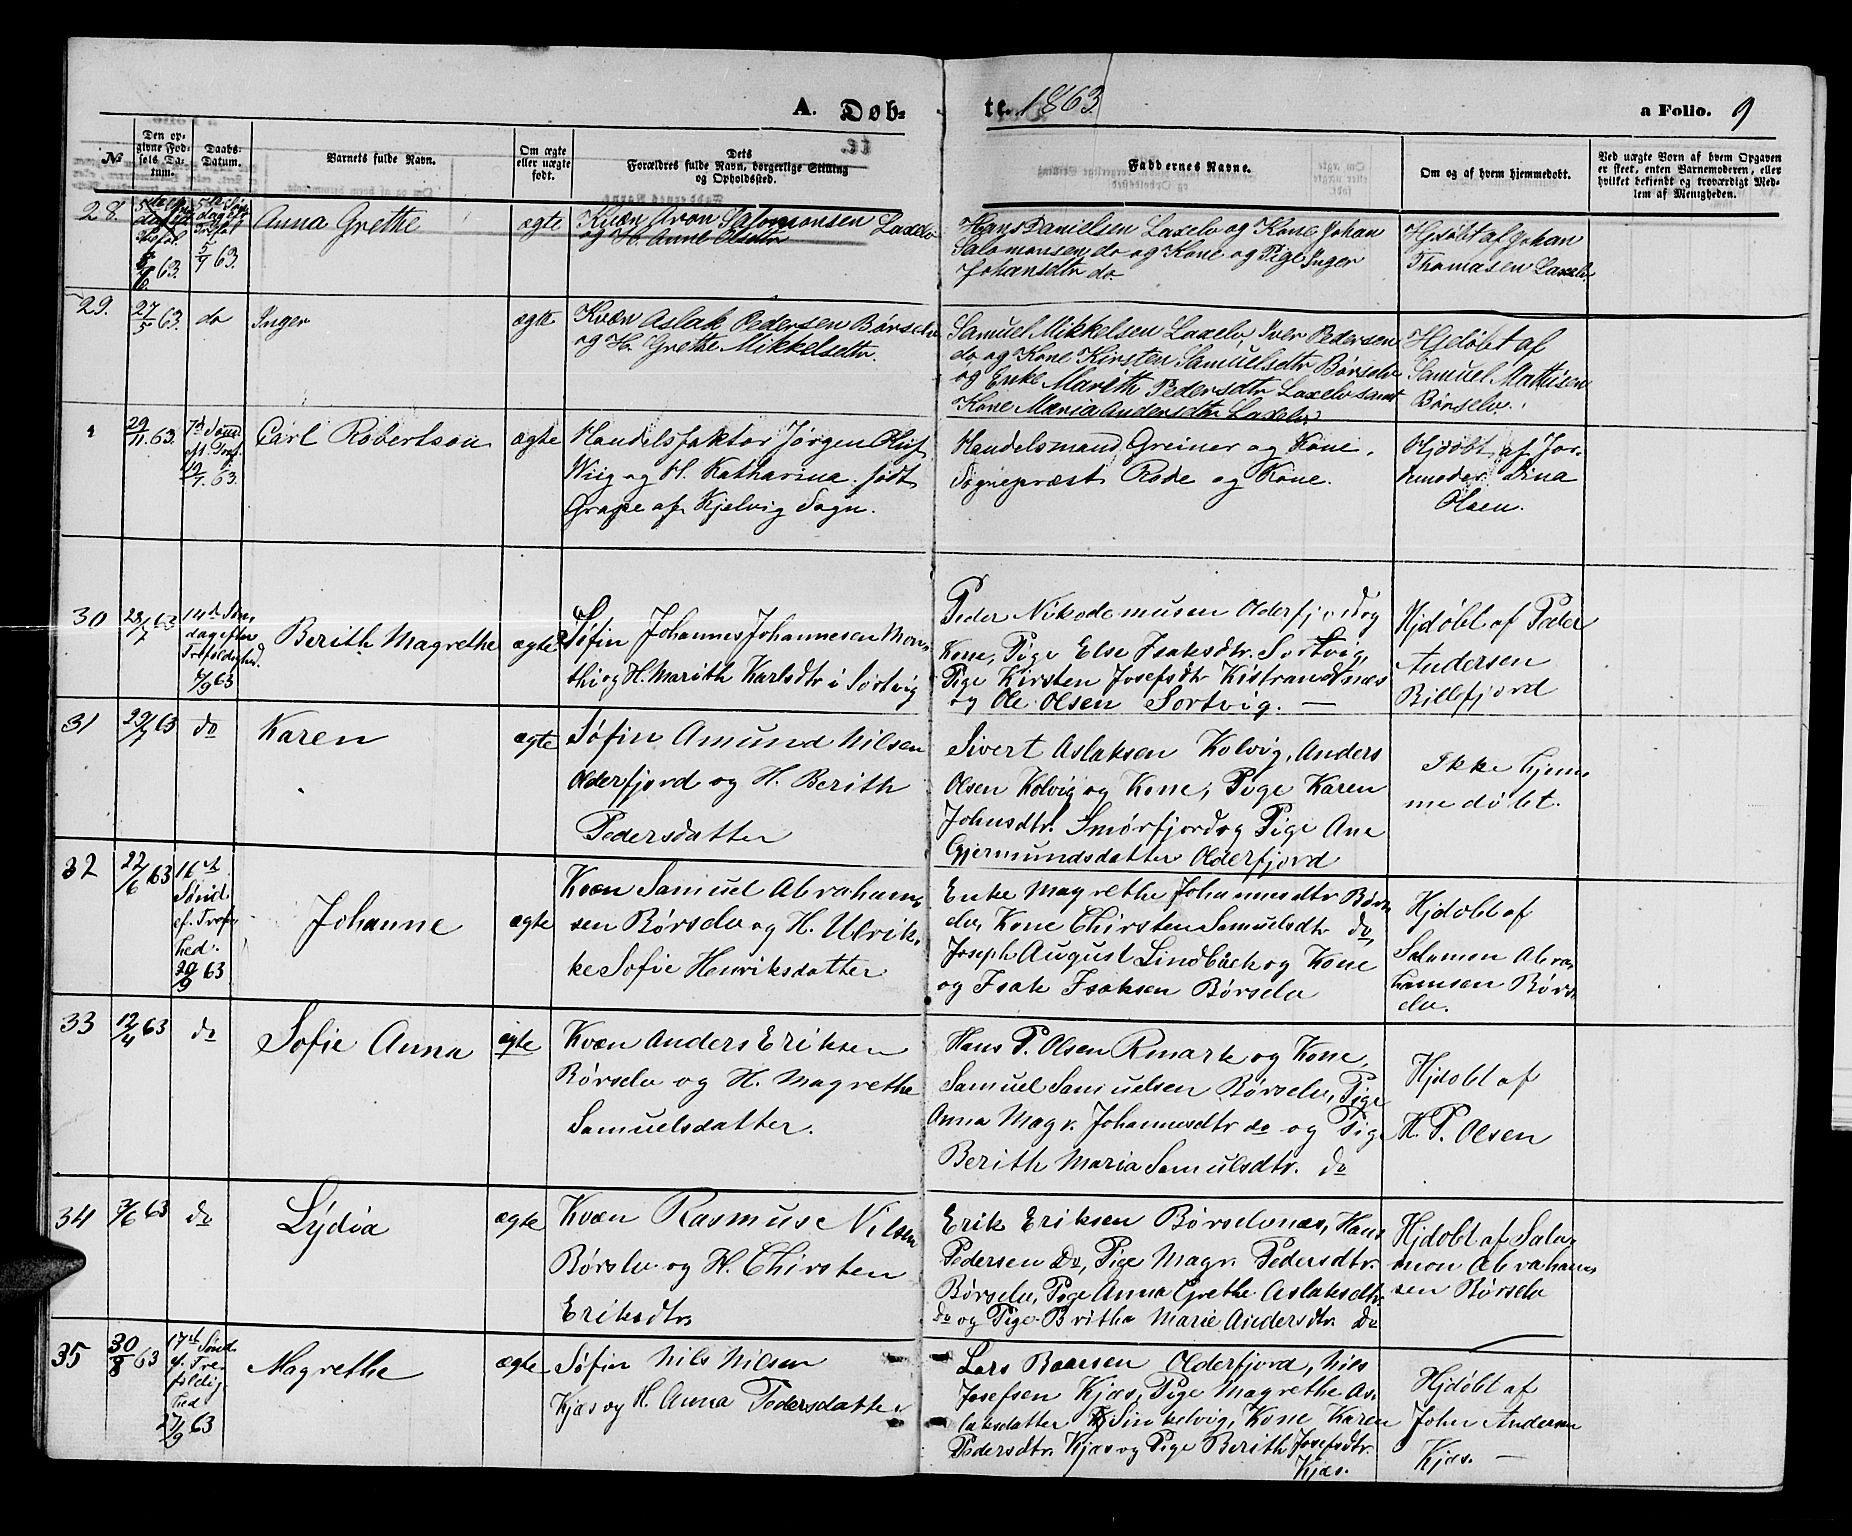 A. Døb=
te. 1863.
a Folio. 9
No
Den op=
givne Fød=
sels Da=
tum.
Daabs=
Datum.
Barnets fulde Navn.
Om ægte
eller uægte
født.
Dets
Forældres fulde Navn, borgerlige Stilling
og Opholdssted.
Faddernes Navne.
Om og af hvem hjemmedøbt.
Ved uægte Børn af hvem Opgaven
er skeet, enten Barnemoderen, eller
hvilket bekjendt og troværdigt Med=
lem af Menigheden.
28.
63.
5/7 63.
Anna Grethe
ægte
Kvæn Aron Salomonsen Laxelv
og H. Anne Olsdtr
Hans Danielsen Laxelv og Kone Johan
Salomonsen do og Kone og Pige Inger
Johansdtr do.
Hjdøbt af Johan
Thomasen Laxelv.
29.
27/5 63.
do
Inger
ægte
Kvæn Aslak Pedersen Børselv
og H. Grethe Mikkelsdtr.
Samuel Mikkelsen Laxelv, Iver Pedersen
do og Kone Kirsten Samuelsdtr Børselv
og Enke Marith Pedersdtr Laxelv samt
Kone Maria Andersdtr Laxelv.
Hjdøbt af
Samuel Mathisen
Børselv.
29/11 63.
7d Sønd
eft. Tref.
19/7 63.
Carl Robertson
ægte
Handelsfaktor Jørgen Oluf
Wiig og H. Katharina født
Grape af Kjelvig Sogn.
Handelsmand Greiner og Kone.
Sognepræst Rode og Kone.
Hjdøbt af Jor=
demoder Lina
Olsen.
30
28/7 63
14d Søn=
dag efter
Trefoldighed.
6/9 63
Berith Magrethe
ægte
Søfin Johannes Johannesen Mon=
thi og H. Marith Karlsdtr i Sortvig
Peder Nikodemusen Olderfjord og
Kone, Pige Else Isaksdtr. Sortvig,
Pige Kirsten Josefsdtr Kistrandnæs
og Ole Olsen Sortvig. —
Hjdøbt af Peter
Andersen
Billefjord
31
29/7 63
do
Karen
ægte
Søfin Amund Nilsen
Olderfjord og H. Berith
Pedersdatter
Sivert Aslaksen Kolvig, Anders
Olsen Kolvig og Kone, Pige Karen
Johnsdtr. Smørfjord og Pige Ane
Gjermundsdatter Olderfjord
Ikke hjem=
medøbt.
32
22/6 63
16de
Sønd.
ef. Trefol=
hed.
20/9 63
Johanne
ægte
Kvæn Samuel Abraham=
sen Børselv og H. Ulrik=
ke Sofie Henriksdatter
Enke Magrethe Johannesdtr Børs=
elv, Kone Chirsten Samuelsdtr do,
Joseph August Lindbäck og Kone
og Isak Isaksen Børselv
Hjdøbt af
Salamon Abra=
hamsen Børs=
elv.
33
12/4 63
do
Sofie Anna
ægte
Kvæn Anders Eriksen
Børselv og H. Magrethe
Samuelsdatter.
Hans P. Olsen Rmark og Kone,
Samuel Samuelsen Børselv, Pige
Anna Magr. Johannesdtr do og Pige
Berith Maria Samulsdtr. do
Hjdøbt af
H. P. Olsen
34
7/6 63
do
Lydia
ægte
Kvæn Rasmus Nilsen
Børslv og H. Chirsten
Eriksdtr.
Erik Eriksen Børselvnæs, Hans
Pedersen Do, Pige Magr. Pedersdtr.
Børselv, Pige Anna Grethe Aslaksdtr.
Do og Pige Britha Marie Andersdtr. Do
Hjdøbt af Salo=
mon Abraham=
sen Børselv
35
30/8 63
17de Sønd.
ef. Tre=
foldig=
hed
27/9 63
Magrethe
ægte
Søfin Nils Nilsen
Kjæs og H. Anna Pedersdatter
Lars Baarsen Olderfjord, Nils
Josefsen Kjæs, Pige Magrethe As=
laksdatter Sinkelvig, Kone Karen
Pedersdtr. Kjæs og Pige Berith Josefsdtr.
Kjæs.
Hjdøbt af
John Andersen
Kjæs. —